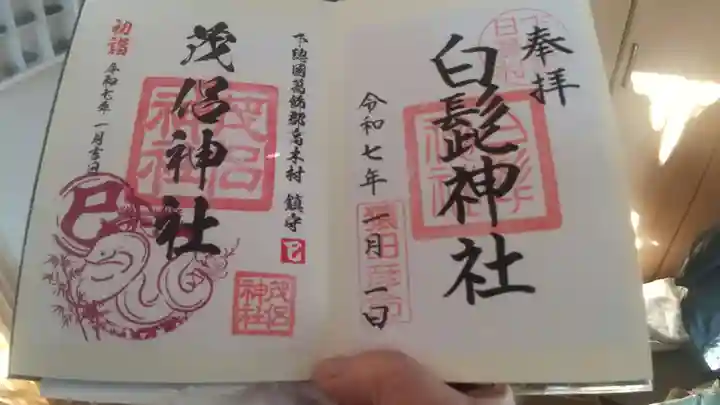 奉拝
白髭神社
令和七年一月一日
猿田彦命
下総國葛飾郡高木村 鎮守
巳
茂侶神社
茂侶神社
茂侶神社
初詣 令和七年一月吉日
巳